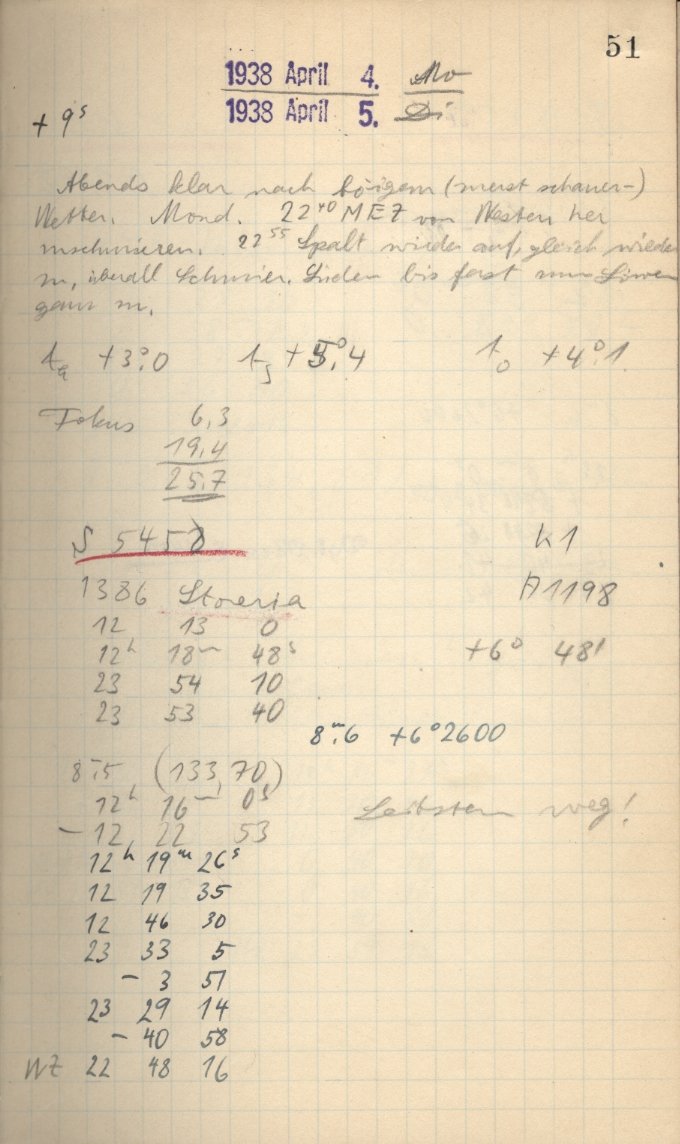 51
1938 April 4. Mo
1938 April 5. Di
+ 9ˢ
Abends klar nach böigem (meist schauer-)
Wetter. Mond. 22⁴⁰ MEZ von Westen her
zuschmieren. 22⁵⁵ Spalt wieder auf, gleich wieder
zu, überall Schmier. Süden bis fast zum Löwen
ganz zu.
tₐ +3°,0 t +5°,4 t₀ +4°,1
Fokus 6,3
19,4
25,7
S 5458 K1
1386 Storeria A1198
12 13 0
12ʰ 18ᵐ 48ˢ +6° 48'
23 54 10
23 53 40
8ᵐ,6 +6°2600
8ᵐ,5 (133,70)
12ʰ 16ᵐ 0ˢ Leitstern weg!
-12 22 53
12ʰ 19ᵐ 26ˢ
12 19 35
12 46 30
23 33 5
- 3 51
23 29 14
- 40 58
WZ 22 48 16